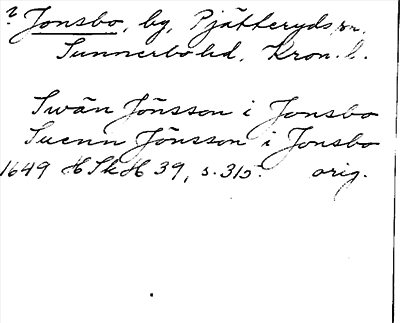 ? Jonsbo, by, Pjätteryds sn,
Sunnerbo hd, Kron. l.
Swän Jönsson i Jonsbo
Suenn Jönsson i Jonsbo
1649 HSkH 39, s. 315. orig.